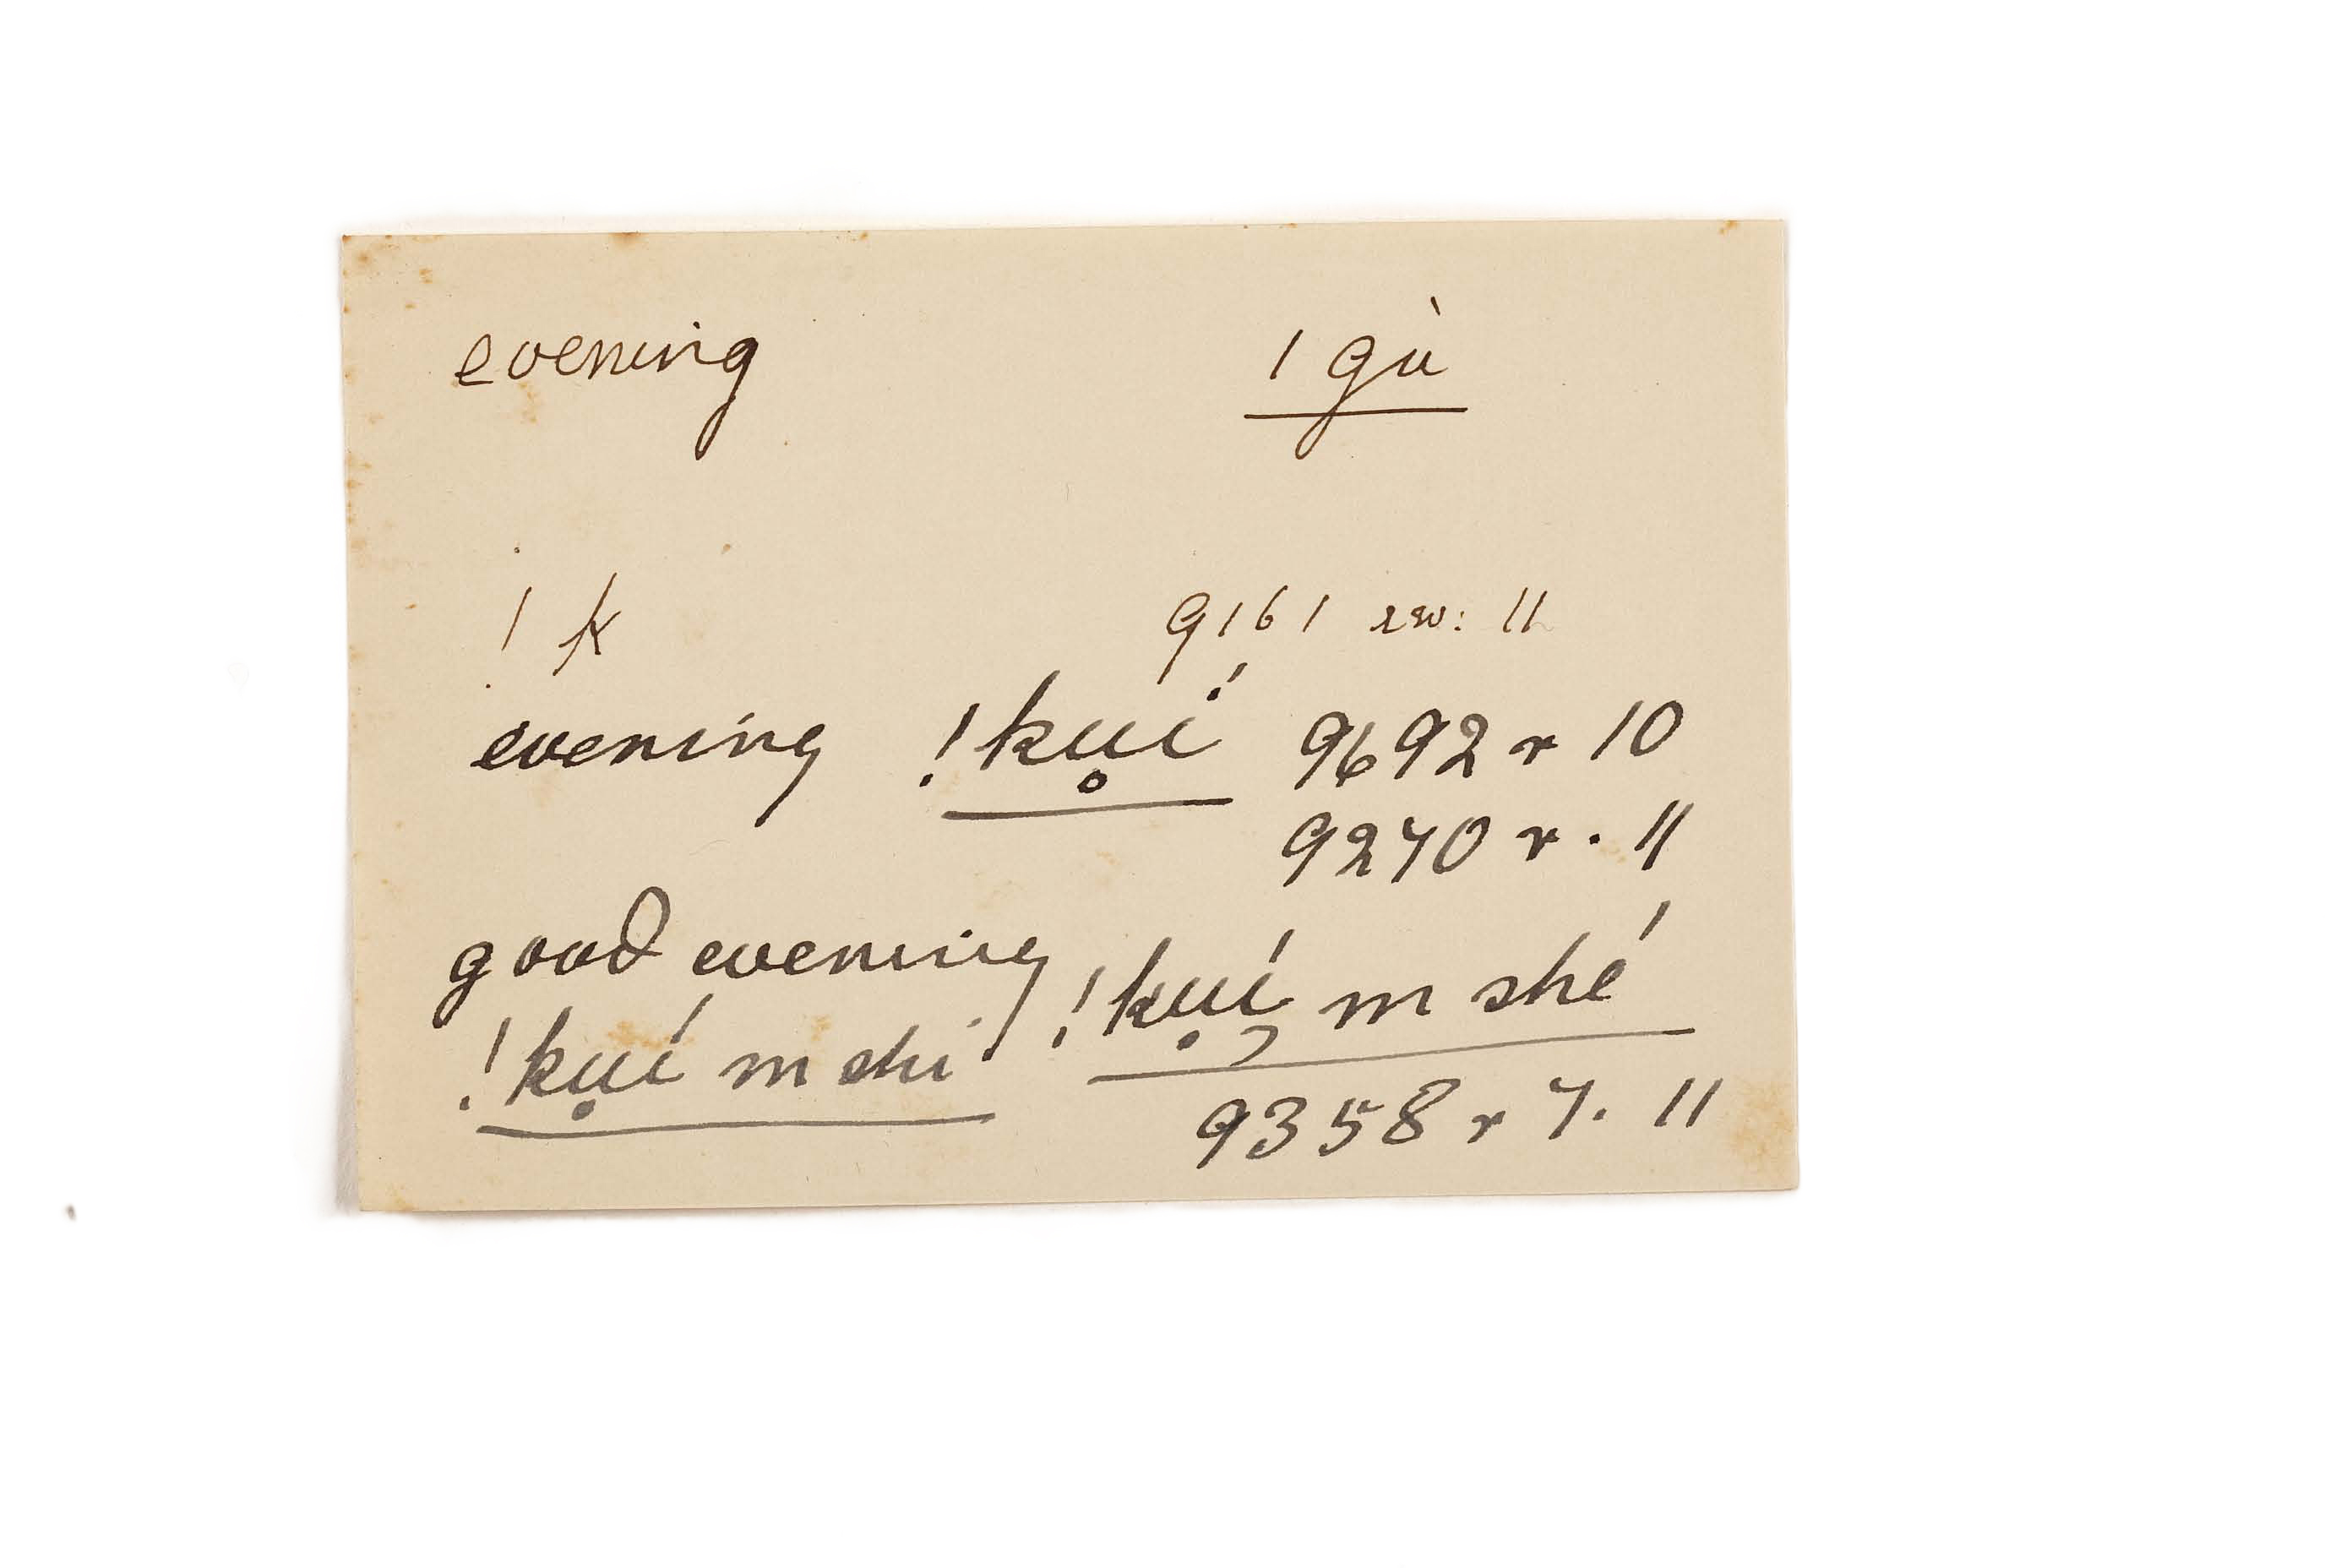 evening ǀ gù
ǀ k 9161 rev: 11
evening !kụí 9692 r 10
9270 r. 11
good evening !kụí m shé
!kụí m shi
9358 r 7. 11